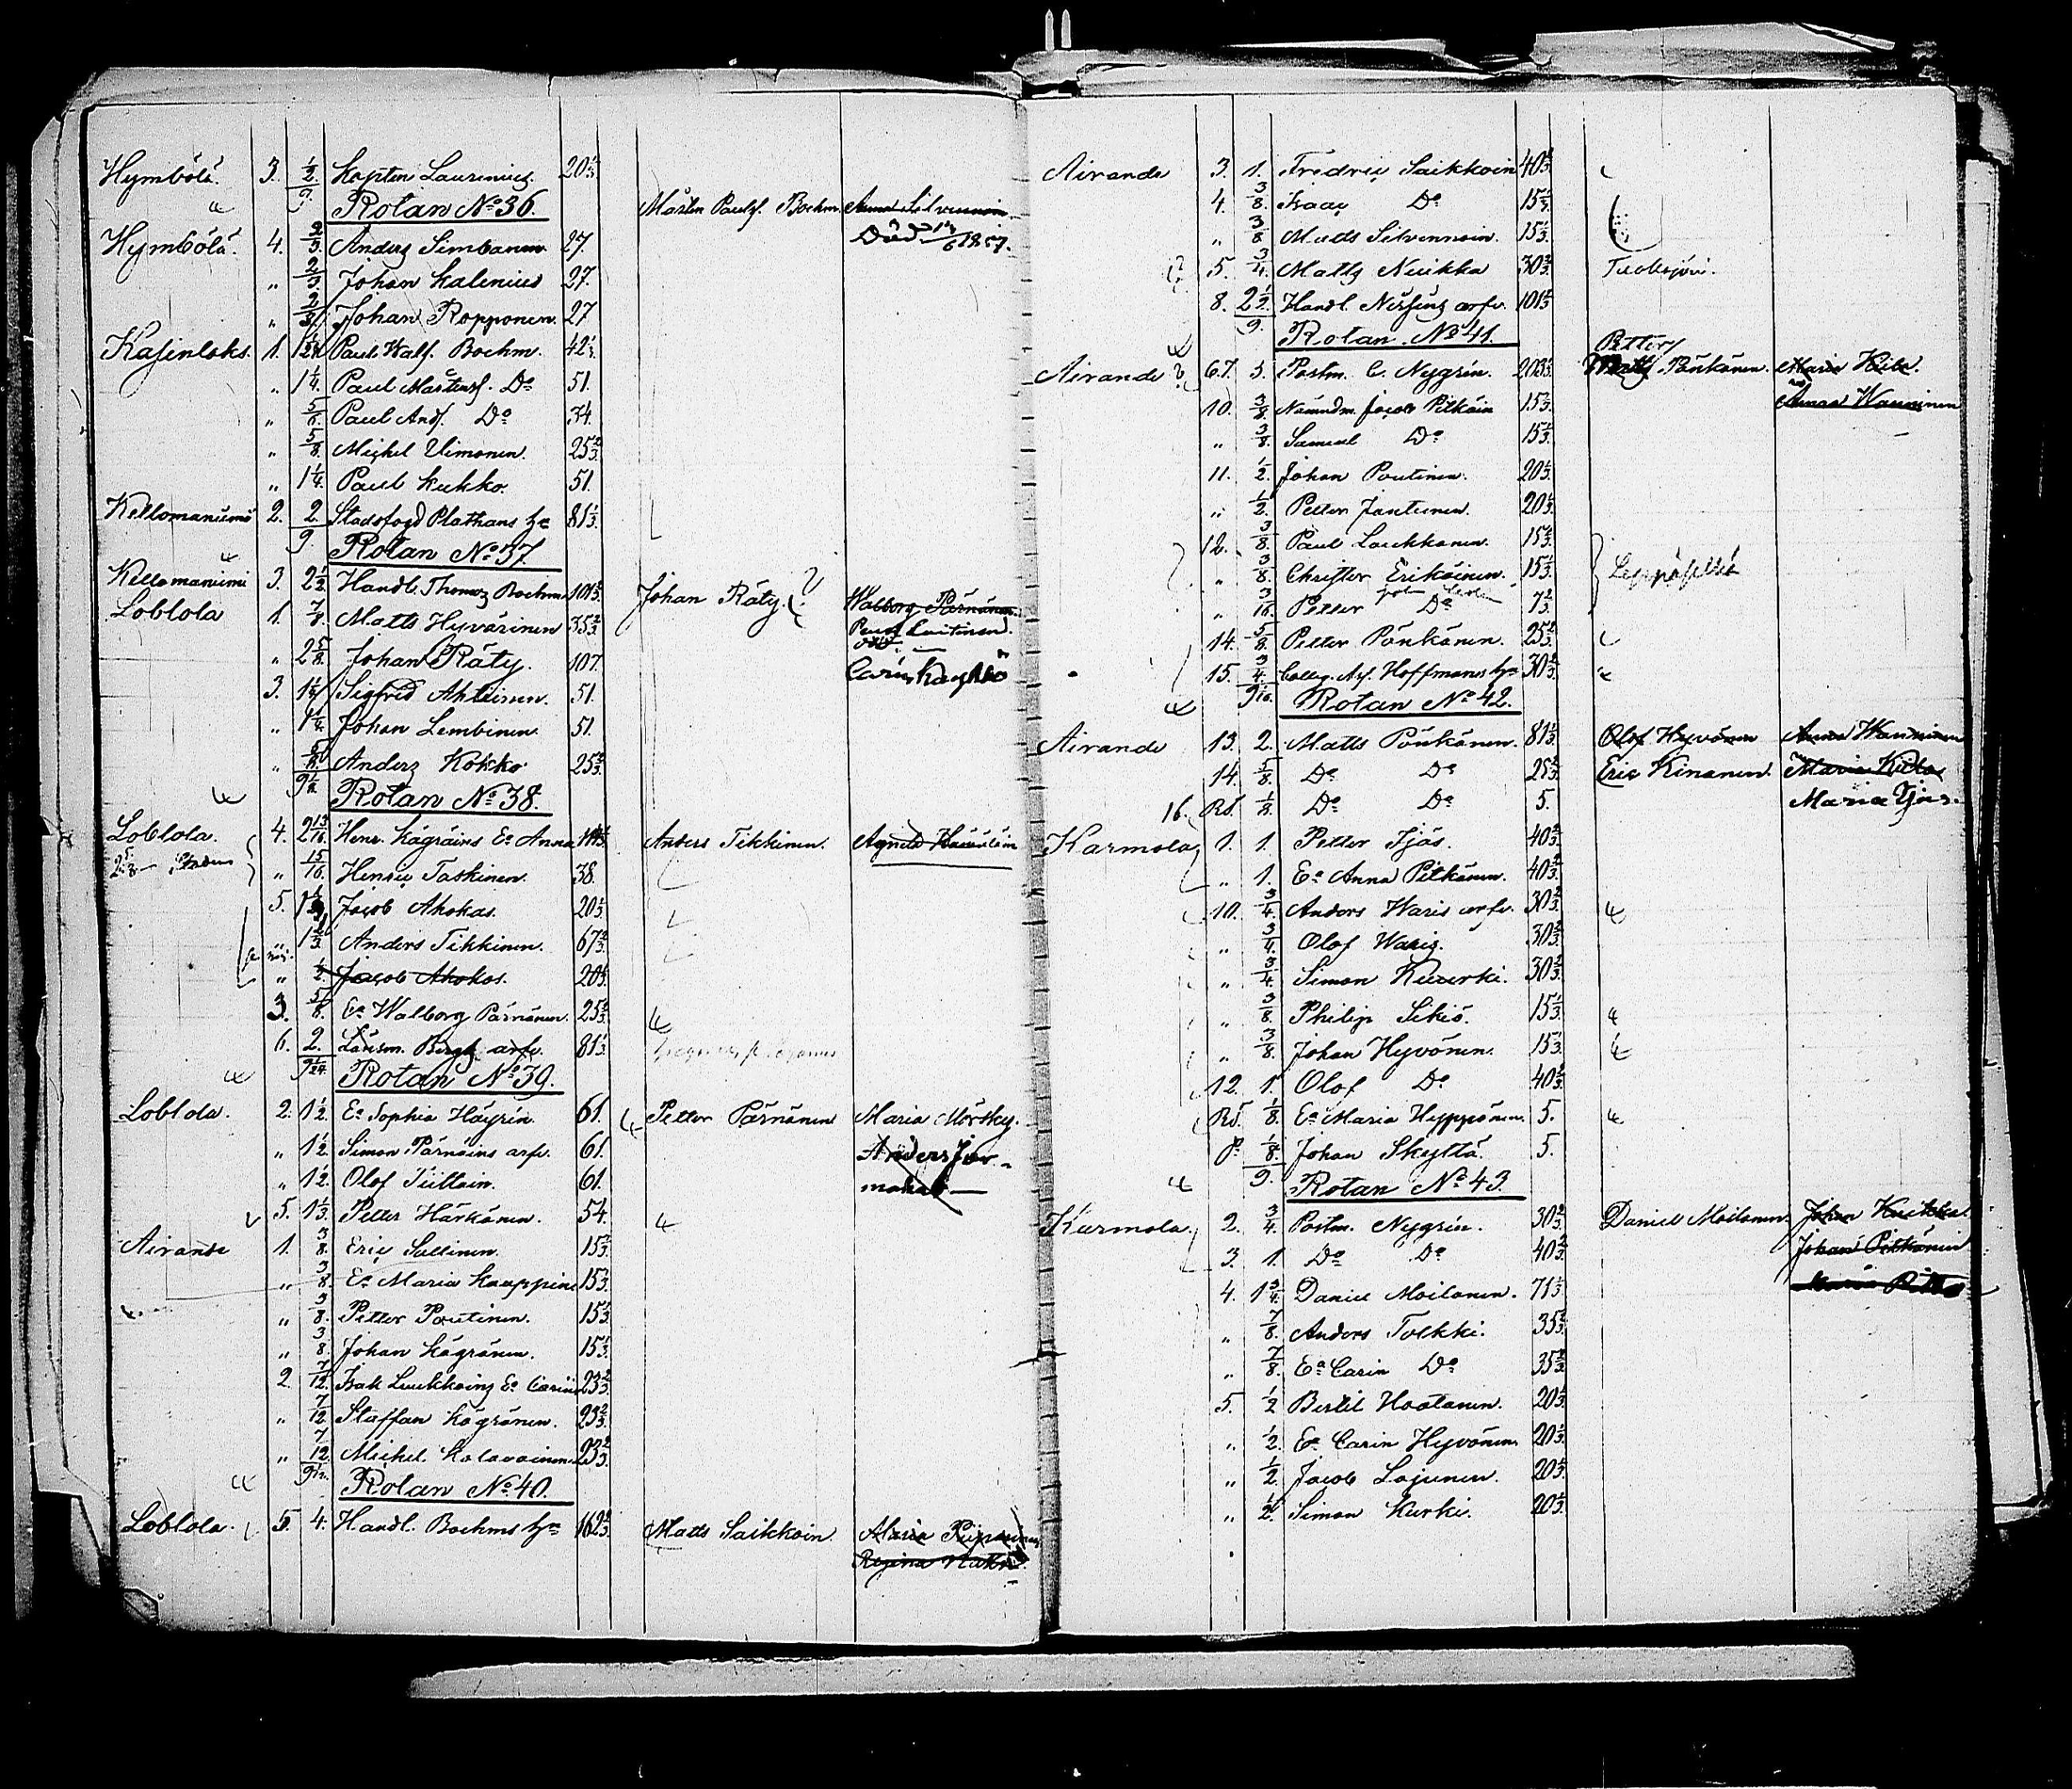 Hymbölä. 3. 1/2. Kapten Laurenius. 20 1/3.
9. Rotan No 36. Mårten Paulss. Boehm. Anna Silvennoin
Hymbölä. 4. 2/3. Anders Simbanen. 27. Död 14/6 1857.
" 2/3. Johan Kalenius 27.
" 2/3. Johan Ropponen. 27
Kasinlaks. 1. Paul Walf. Boehm. 42
" 1 1/4. Paul Mårtenss. Do 51.
" 5/6. Paul Ands. Do 34.
" 5/8. Michel Uimonen. 25 2/3.
" 1 1/4. Paul Kukko. 51.
Kellomaniemi 2. 2. Stadsfogd Plathans 81 1/3.
9. Rotan No 37.
Kellomaniemi 3. 2 1/2. Handl. Thomas Boehms 101 2/3. Johan Räty. ? Walborg Pärnänen.
Loblola 1. 7/8. Matts Hyvärinen 35 2/3. Luitinen.
" 2 5/8. Johan Räty. 107. Carin
3. 1 1/4. Sigfrid Ahtiainen. 51.
" 1 1/4. Johan Lembinen. 51.
" 5/8. Anders Kokko 25 2/3.
Rotan No 38.
Loblola. 4. 2 13/16. Henr. Kägräins Ea Anna Anders Tikkinen. Agneta
" 15/16. Henric Taskinen. 38.
5. Jacob Ahokas. 20 1/3.
" 1 2/3. Anders Tikkinen. 67 2/3.
" 1/2. Jacob Ahokas. 20 1/3.
3. 5/8. Ea Walborg Pärnänen. 25 2/3.
6. 2. Länsm. Bergs arfv. 81 1/3.
9 1/24. Rotan No 39.
Loblola. 2. 1 1/2. Ea Sophia Häyrin. 61. Petter Pärnänen Maria Mörsky.
" 1 1/2. Simon Pärnäins arfv. 61. Anders Jor-
" 1 1/2. Olof Tiittain. 61. makab
5. 1 1/3. Petter Härkönen. 54.
Airanne 1. 3/8. Eric Sallinen. 15 1/3.
" 3/8. Ea Maria Kauppine 15 1/3.
" 3/8. Petter Poutinen. 15 1/3.
" 3/8. Johan Kägränen. 15 1/3.
2. 7/12. Isak Luukkoins Ea Carin 23 2/3.
" 7/12. Staffan Kägränen. 23 2/3.
" 7/12. Michel Kolavainen. 23 2/3.
9 1/12. Rotan No 40.
Loblola. 5. 4. Handl. Boehms 162 2/3. Matts Saikkoin. Maria
Regina
Airande 3. 1. Fredric Saikkoin 40 2/3.
4. 3/8. Isaac Do 15 1/3.
" 3/8. Matts Silvennoin. 15 1/3.
5. 3/4. Matts Nuikka 30 2/3.
8. 2 1/2. Handl. arfv. 101 2/3.
9. Rotan No 41.
Petter
Airande 6.7. 5. Postm. C. Nygrén. 203 1/3. Matts Pönkönen. Maria
10. 3/8. Nämndm. Jacob Pitkäin 15 1/3. Anna Wanninen
" 3/8. Samuel Do 15 1/3.
11. 1/2. Johan Poutinen. 20 1/3.
" 1/2. Petter Jantunen. 20 1/3.
12. 3/8. Paul Laukkanen. 15 1/3.
" 3/8. Christer Erikäinen. 15 1/3.
" 3/16. Petter Do 7 2/3.
14. 5/8. Petter Pönkönen. 25 2/3.
15. 3/4. Colleg. Ass. Hoffmans 30 2/3.
9 1/16. Rotan No 42.
Airande 13. 2. Matts Pönkönen. 81 1/3. Olof Hyvönen Anna Wanninen
14. 5/8. Do Do 25 2/3. Eric Kinanen. Maria
16. Rå. 1/8. Do Do 5. Maria
Karmola 1. 1. Petter Ijäs. 40 2/3.
" 1. Ea Anna Pitkänen. 40 2/3.
10. 3/4. Anders Waris arfv. 30 2/3.
" 3/4. Olof Waris. 30 2/3.
" 3/4. Simon Kuurki. 30 2/3.
" 3/8. Philip Sikiö. 15 1/3.
" 3/8. Johan Hyvönen. 15 1/3.
12. 1. Olof Do 40 2/3.
Rå. 1/8. Ea Maria Hyppönen. 5.
1/8. Johan Skyttä. 5.
9. Rotan No 43.
Karmola. 2. 3/4. Postm. Nygrén. 30 2/3. Daniel Moilanen. Johan
3. 1. Do Do 40 2/3. Johan Pitkänen
4. 1 3/4. Daniel Moilanen. 71 1/3.
" 7/8. Anders Tolkki. 35 2/3.
" 7/8. Ea Carin Do 35 2/3.
5. 1/2 Bertil Hootanen. 20 1/3.
" 1/2. Ea Carin Hyvönen 20 1/3.
" 1/2. Jacob Lajunen. 20 1/3.
" 1/2. Simon Kurki. 20 1/3.